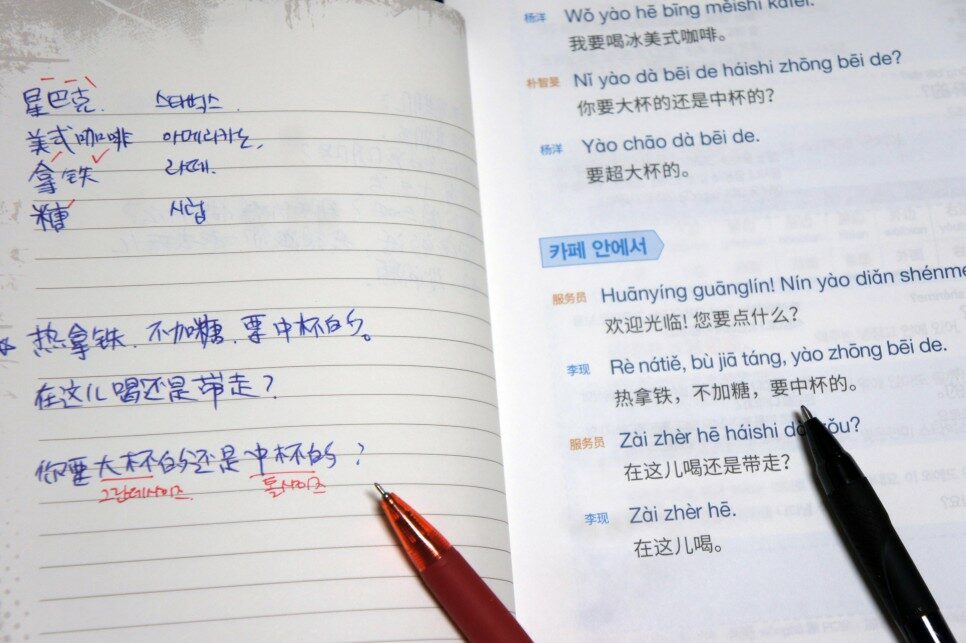 星巴克. 스타벅스.
美式咖啡 아메리카노,
拿铁 라떼.
糖 시럽
热拿铁. 不加糖. 要中杯的。
在这儿喝还是带走?
你要大杯的还是中杯的?
그란데사이즈 톨사이즈
杨洋 Wǒ yào hē bīng měishì kāfēi.
我要喝冰美式咖啡。
朴智旻 Nǐ yào dà bēi de háishi zhōng bēi de?
你要大杯的还是中杯的?
杨洋 Yào chāo dà bēi de.
要超大杯的。
카페 안에서
服务员 Huānyíng guānglín! Nín yào diǎn shénme
欢迎光临! 您要点什么?
李现 Rè nátiě, bù jiā táng, yào zhōng bēi de.
热拿铁，不加糖，要中杯的。
服务员 Zài zhèr hē háishi
在这儿喝还是带走?
李现 Zài zhèr hē.
在这儿喝。